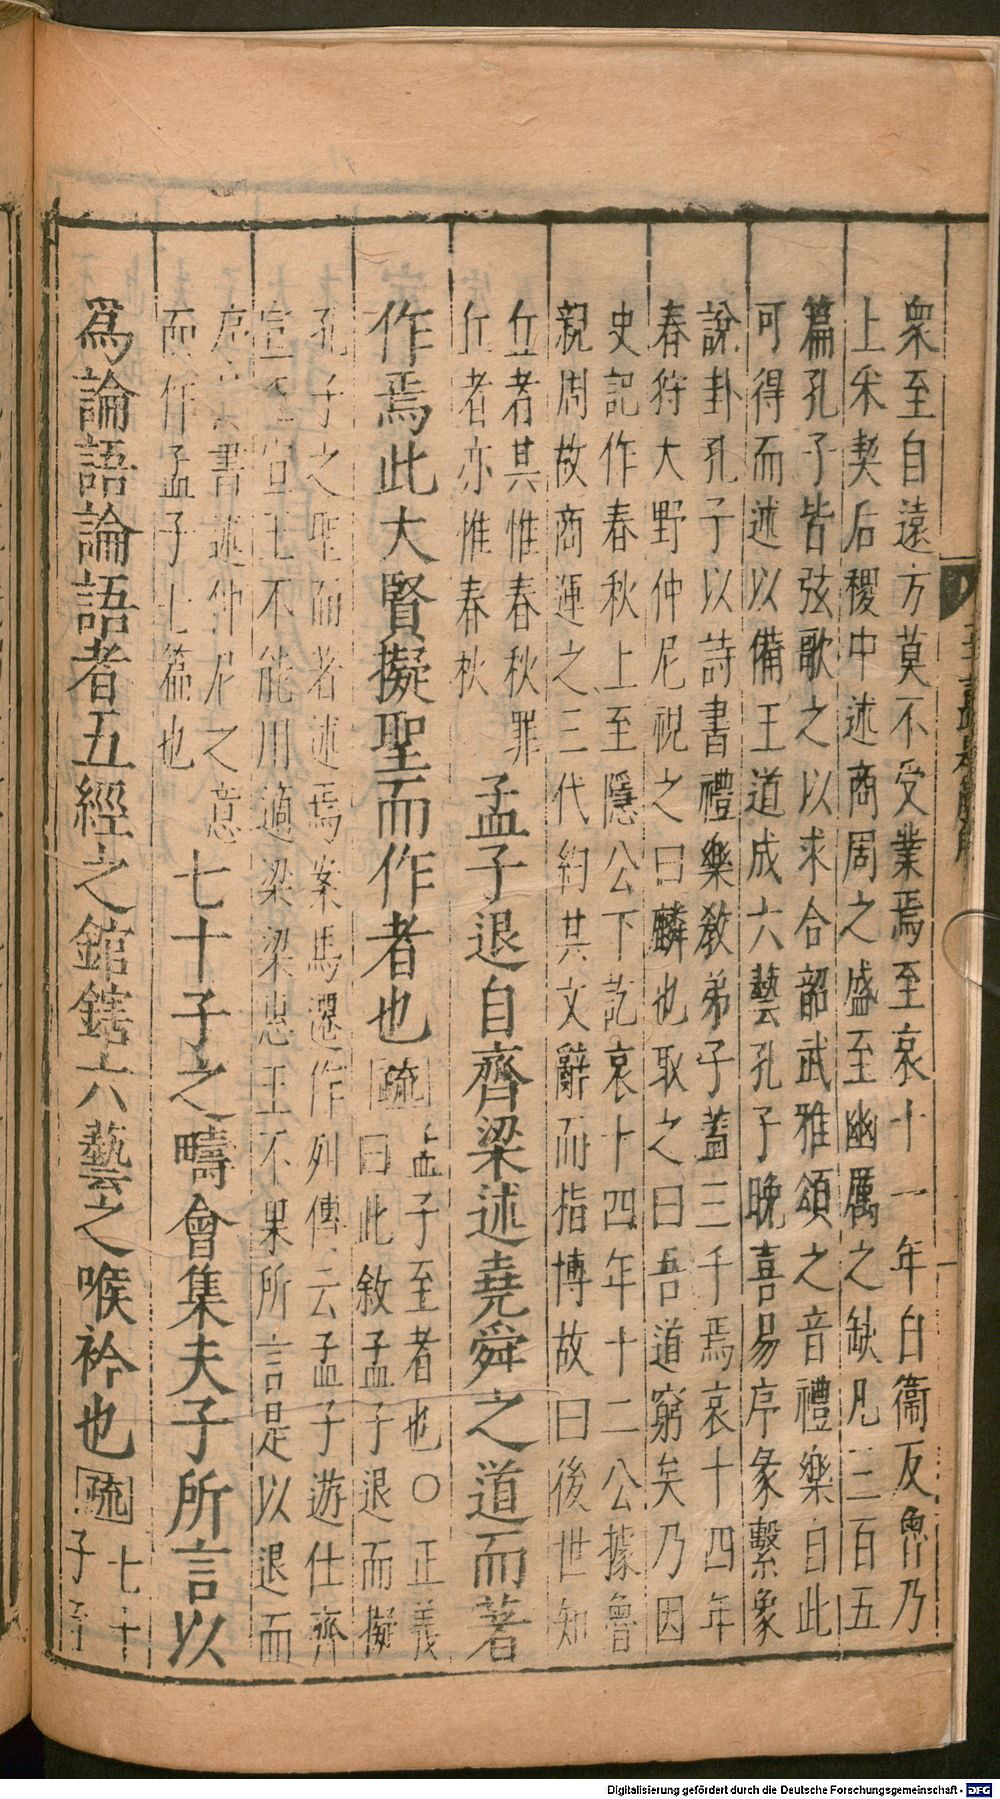 衆至自遠方莫不受業焉至哀十一年自衞反魯乃
上采契后稷中述商周之盛至幽厲之缺凡三百五
篇孔子皆弦歌之以求合韶武雅頌之音禮樂自此
可得而述以備王道成六藝孔子晚喜易序彖繫象
說卦孔子以詩書禮樂敎弟子蓋三千焉哀十四年
春狩大野仲尼視之曰麟也取之曰吾道窮矣乃因
史記作春秋上至隱公下訖哀十四年十二公據魯
親周故商運之三代約其文辭而指博故曰後世知
丘者其惟春秋罪
丘者亦惟春秋
孟子退自齊梁述堯舜之道而著
作焉此大賢擬聖而作者也
疏
孟子至者也○正義
曰此敘孟子退而擬
孔子之聖而著述焉案馬遷作列傳云孟子遊仕齊
宣王宣王不能用適梁梁惠王不果所言是以退而
序詩書述仲尼之意
而作孟子七篇也
七十子之疇會集夫子所言以
爲論語論語者五經之錧鎋六藝之喉衿也
疏
七十
子子
Digitalisierung gefördert durch die Deutsche Forschungsgemeinschaft - DFG